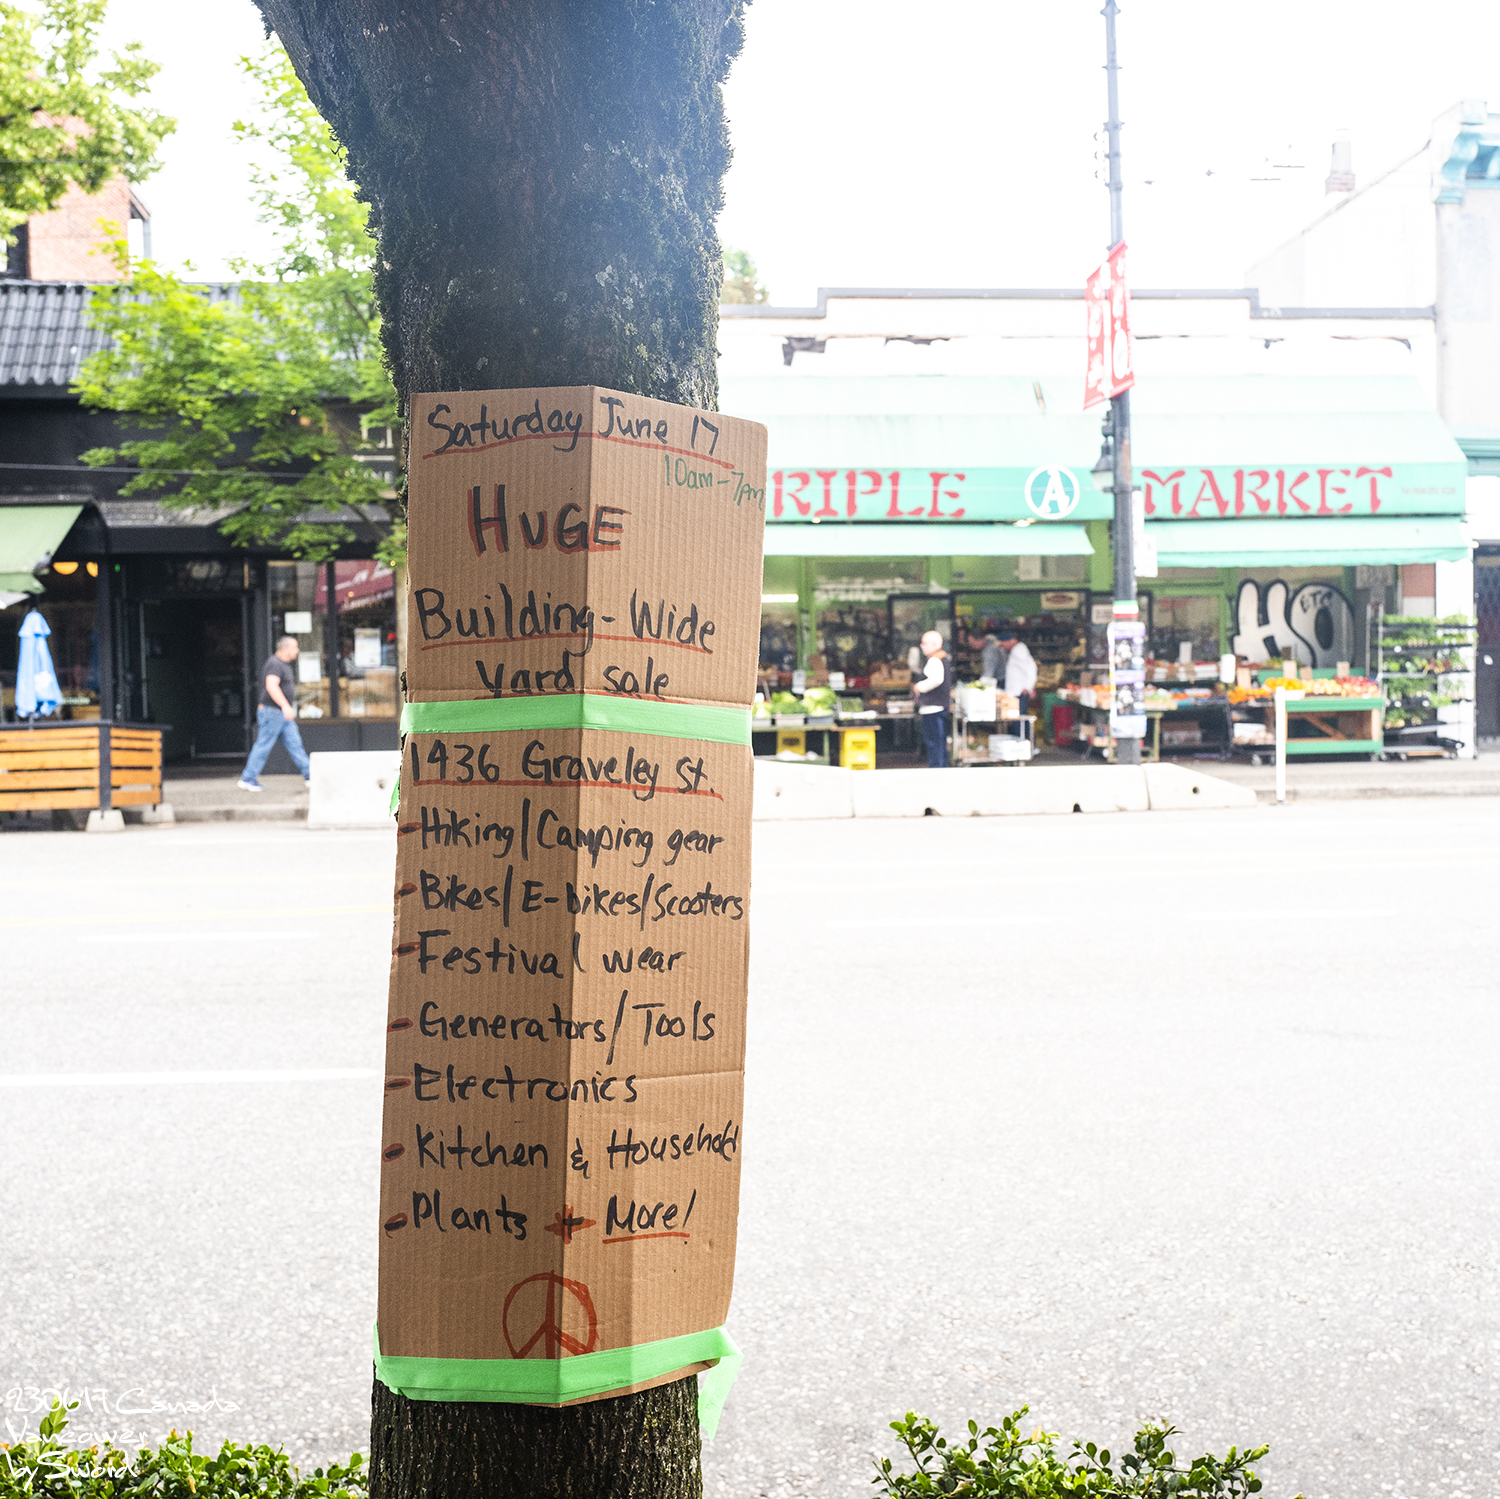 Saturday June 17
10am-7pm
HUGE
Building-Wide
yard sale
1436 Graveley St.
- Hiking/Camping gear
- Bikes/E-bikes/Scooters
- Festival wear
- Generators/Tools
- Electronics
- Kitchen & Household
- Plants + More!
RIPLE A MARKET
HO
ETC
230617 Canada
Vancouver
by Sword